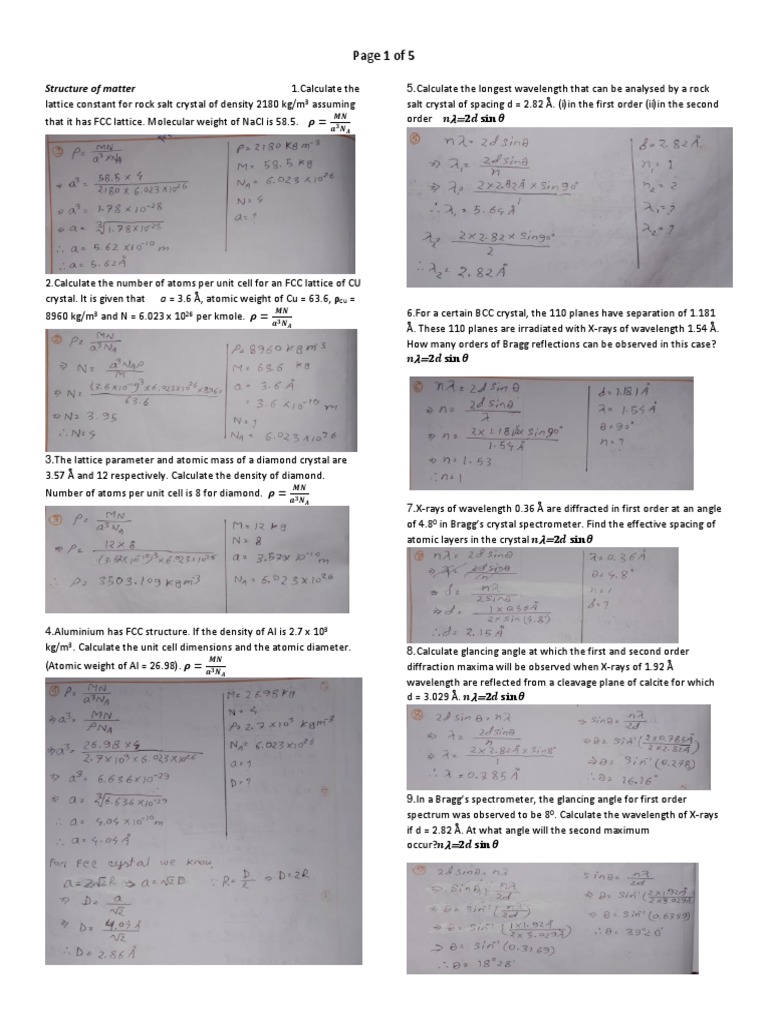 Page 1 of 5
Structure of matter 1.Calculate the
lattice constant for rock salt crystal of density 2180 kg/m³ assuming
that it has FCC lattice. Molecular weight of NaCl is 58.5. ρ = MN/a³N_A
① ρ = MN/a³N_A
⇒ a³ = 58.5 × 4/2180 × 6.023×10²⁶
⇒ a³ = 1.78 × 10⁻²⁸
⇒ a = ∛1.78×10⁻²⁸
∴ a = 5.62 × 10⁻¹⁰ m
∴ a = 5.62 Å
ρ = 2180 kg m⁻³
M = 58.5 kg
N_A = 6.023 × 10²⁶
N = 4
a = ?
2.Calculate the number of atoms per unit cell for an FCC lattice of CU
crystal. It is given that a = 3.6 Å, atomic weight of Cu = 63.6, ρcu =
8960 kg/m³ and N = 6.023 x 10²⁶ per kmole. ρ = MN/a³N_A
② ρ = MN/a³N_A
⇒ N = a³N_Aρ/M
⇒ N = 63.6
⇒ N = 3.95
∴ N = 4
ρ = 8960 kg m⁻³
M = 63.6 kg
a = 3.6 Å
= 3.6 × 10⁻¹⁰ m
N = ?
N_A = 6.023 × 10²⁶
3.The lattice parameter and atomic mass of a diamond crystal are
3.57 Å and 12 respectively. Calculate the density of diamond.
Number of atoms per unit cell is 8 for diamond. ρ = MN/a³N_A
③ ρ = MN/a³N_A
⇒ ρ = 12 × 8
∴ ρ = 3503.109 kg m⁻³
M = 12 kg
N = 8
a = 3.57 × 10⁻¹⁰ m
N_A = 6.023 × 10²⁶
4.Aluminium has FCC structure. If the density of Al is 2.7 x 10³
kg/m³. Calculate the unit cell dimensions and the atomic diameter.
(Atomic weight of Al = 26.98). ρ = MN/a³N_A
④ ρ = MN/a³N_A
⇒ a³ = MN/ρN_A
⇒ a³ = 26.98 × 4/2.7×10³ × 6.023×10²⁶
⇒ a³ = 6.636×10⁻²⁹
⇒ a = ∛6.636 × 10⁻²⁹
∴ a = 4.04 × 10⁻¹⁰ m
∴ a = 4.04 Å
M = 26.98 kg
N = 4
ρ = 2.7 × 10³ kg m⁻³
N_A = 6.023×10²⁶
a = ?
D = ?
For FCC cystal we know
a = 2√2R ⇒ a = √2 D ∵ R = D/2 ⇒ D = 2R
⇒ D = a/√2
⇒ D = 4.04 Å/√2
∴ D = 2.86 Å
5.Calculate the longest wavelength that can be analysed by a rock
salt crystal of spacing d = 2.82 Å. (i)in the first order (ii)in the second
order nλ=2d sin θ
⑤ nλ = 2d sinθ
⇒ λ₁ = 2d sinθ/n
⇒ λ₁ = 2×2.82Å × sin90°/1
∴ λ₁ = 5.64 Å
λ₂ = 2×2.82 × sin90°/2
∴ λ₂ = 2.82 Å
d = 2.82 Å
n₁ = 1
n₂ = 2
λ₁ = ?
λ₂ = ?
6.For a certain BCC crystal, the 110 planes have separation of 1.181
Å. These 110 planes are irradiated with X-rays of wavelength 1.54 Å.
How many orders of Bragg reflections can be observed in this case?
nλ=2d sin θ
⑥ nλ = 2d sinθ
⇒ n = 2d sinθ/λ
⇒ n = 2×1.181Å × sin90°/1.54Å
⇒ n = 1.53
∴ n = 1
d = 1.181 Å
λ = 1.54 Å
θ = 90°
n = ?
7.X-rays of wavelength 0.36 Å are diffracted in first order at an angle
of 4.8⁰ in Bragg's crystal spectrometer. Find the effective spacing of
atomic layers in the crystal nλ=2d sin θ
nλ = 2d sinθ
⇒ d = nλ/2sinθ
⇒ d = 1×0.36Å/2×sin(4.8°)
∴ d = 2.15 Å
λ = 0.36 Å
θ = 4.8°
n = 1
d = ?
8.Calculate glancing angle at which the first and second order
diffraction maxima will be observed when X-rays of 1.92 Å
wavelength are reflected from a cleavage plane of calcite for which
d = 3.029 Å. nλ=2d sin θ
⑧ 2d sinθ = nλ
⇒ λ = 2d sinθ/n
⇒ λ = 2×2.82Å × sin8°/1
∴ λ = 0.785 Å
⇒ sinθ = nλ/2d
⇒ θ = sin⁻¹(2×0.785Å/2×2.82Å)
⇒ θ = sin⁻¹(0.278)
∴ θ = 16.16°
9.In a Bragg's spectrometer, the glancing angle for first order
spectrum was observed to be 8⁰. Calculate the wavelength of X-rays
if d = 2.82 Å. At what angle will the second maximum
occur?nλ=2d sin θ
2d sinθ = nλ
⇒ sinθ = nλ/2d
⇒ θ = sin⁻¹(nλ/2d)
⇒ θ = sin⁻¹(1×1.92Å/2×3.029Å)
⇒ θ = sin⁻¹(0.3169)
∴ θ = 18°28'
sinθ = nλ/2d
⇒ θ = sin⁻¹(2×1.92Å/2×3.029Å)
⇒ θ = sin⁻¹(0.6339)
∴ θ = 39°20'